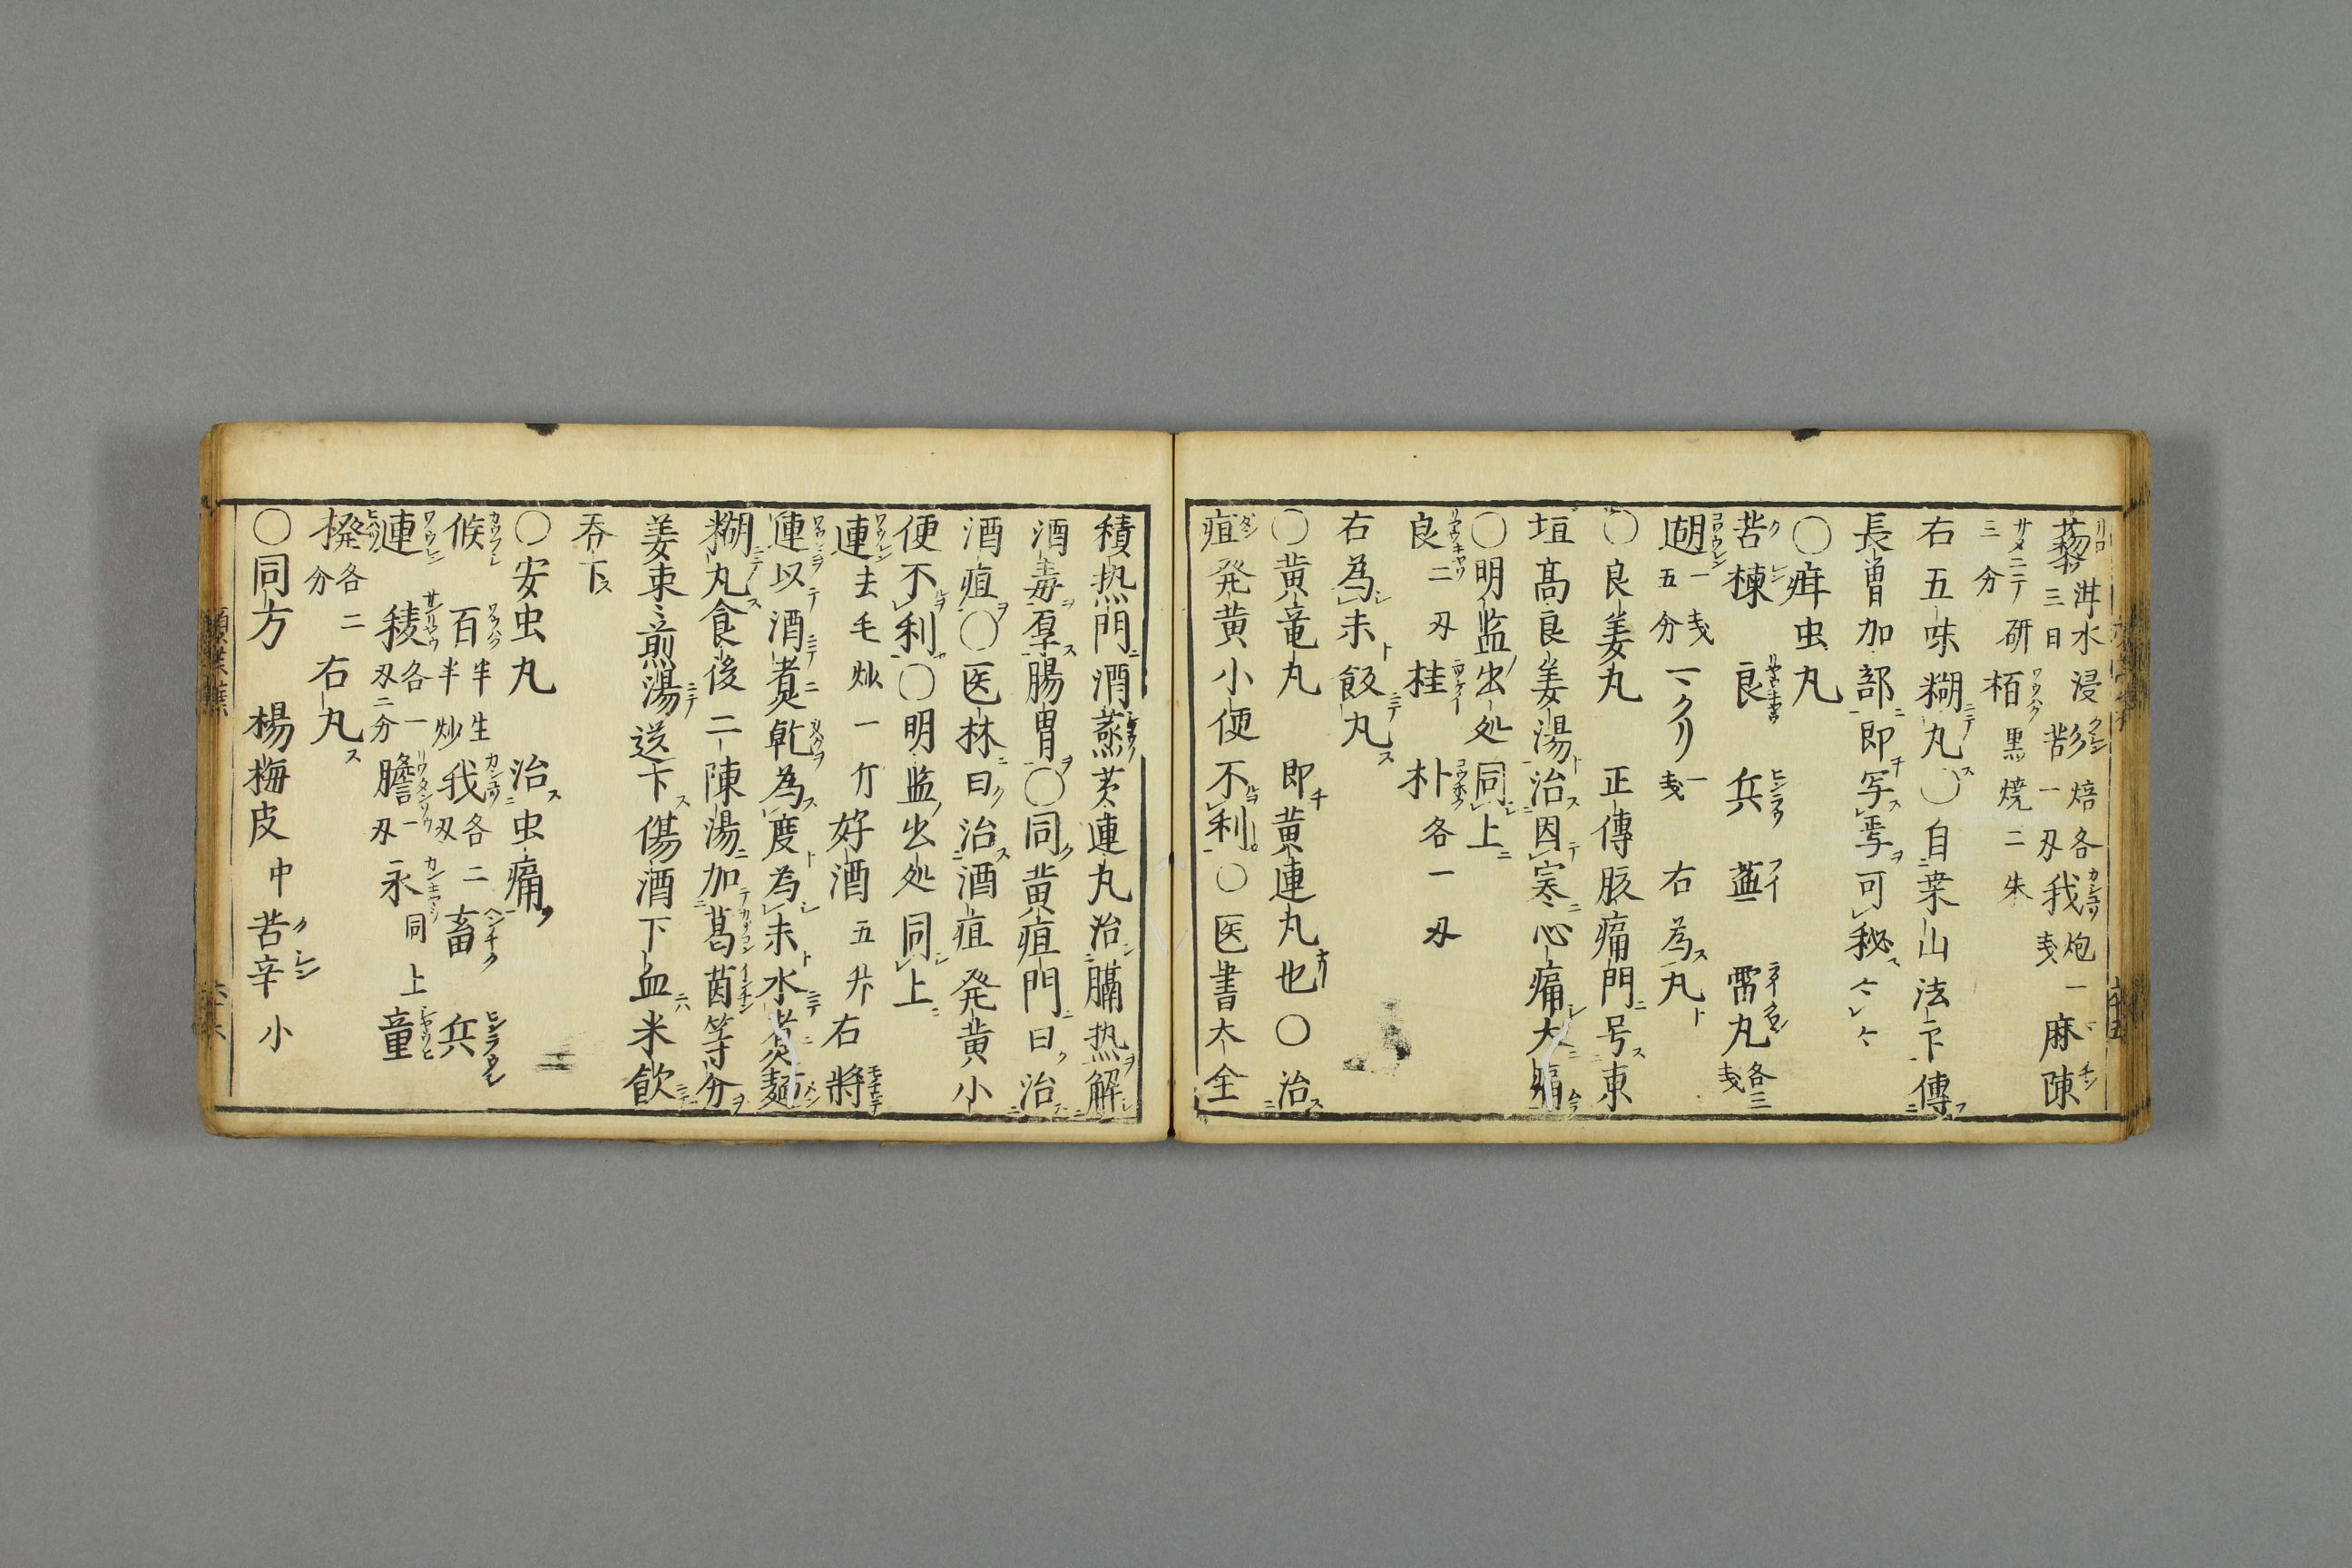 藜 泔水浸三日 苦 焙各一刄 我 炮一戔 麻 陳
三分 研 栢 黒焼二朱
右五味糊丸○自桒山法下傳
長曽加部即写焉可秘
○疰虫丸
苦楝 良 兵 蘆 雷丸 各三戔
胡 一戔五分 一クリ 一戔 右為丸
○良姜丸 正傳胲痛門号東
垣髙良姜湯治因寒心痛大痛
○明监出処同上
良 二刄 桂 朴 各一刄
右為末飯丸
○黄竜丸 即黄連丸也○治
疸発黄小便不利○医書大全
積热門酒蒸黄連丸治膈热解
酒毒厚腸胃○同黄疸門曰治
酒疸○医林曰治酒疸発黄小
便不利○明监出処同上
連 去毛炒一斤 好酒 五升 右將
連以酒煮乾為度為末水煮麺
糊丸食後二陳湯加葛茵等分
姜枣煎湯送下傷酒下血米飲
吞下
○安虫丸 治虫痛
候 百 半生半炒 我 各二刄 畜 兵
連 稜 各一刄二分 膽 一刄 永 同上 童
撥 各二分 右丸
○同方 楊梅皮 中 苦辛 小